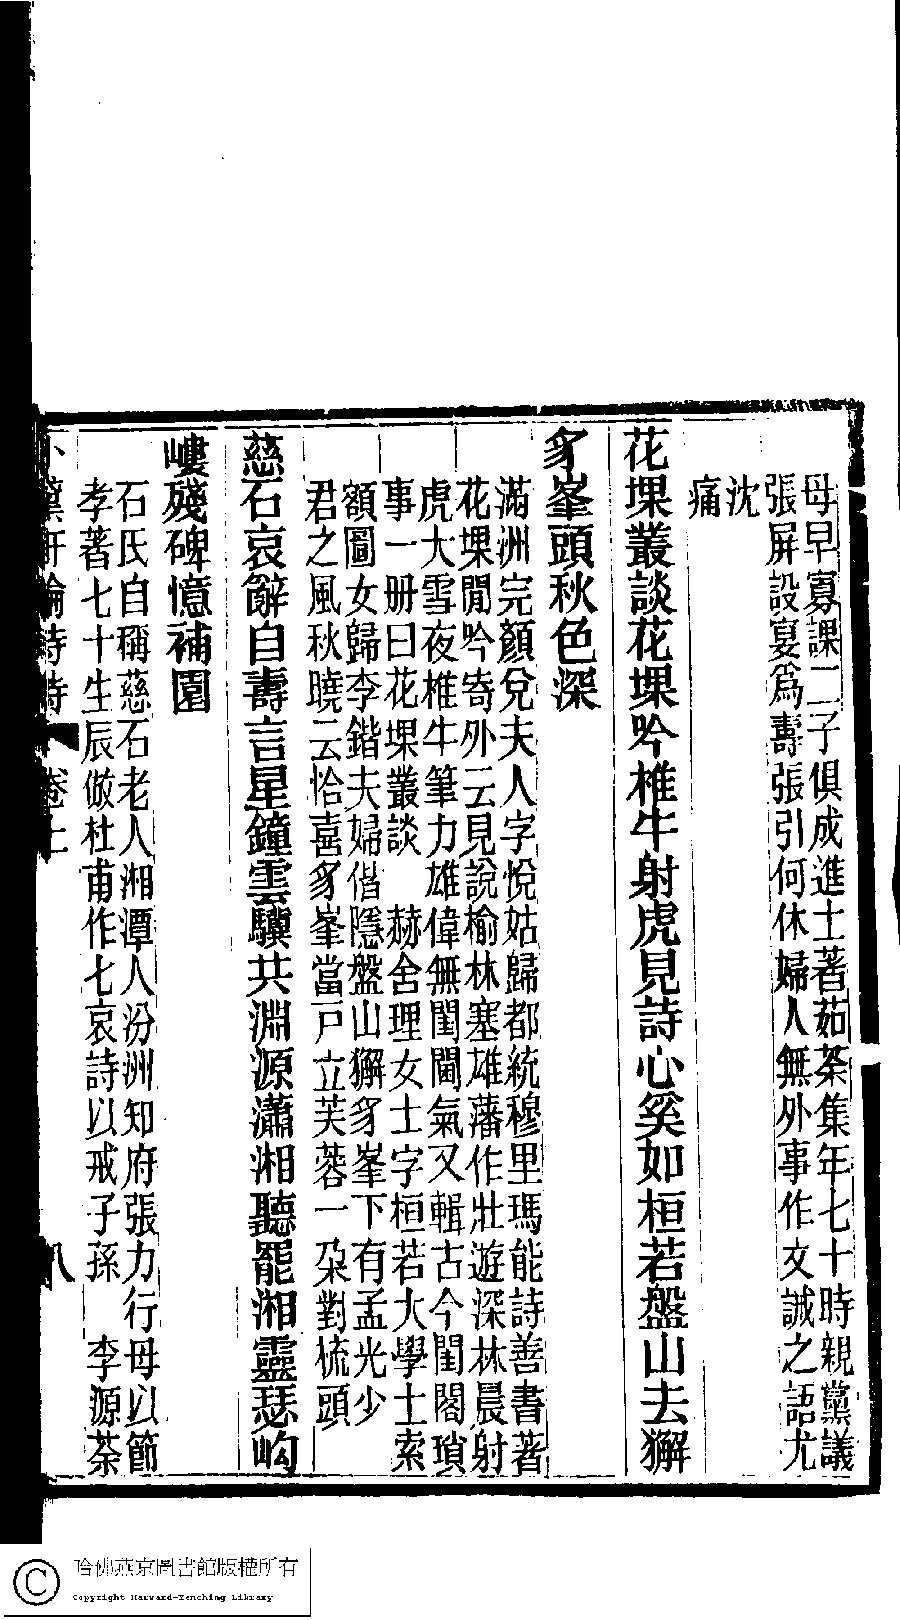 母早寡課二子俱成進士著茹荼集年七十時親黨議
張屏設宴爲壽張引何休婦人無外事作文誡之語尤
沈
痛
花堁叢談花堁吟椎牛射虎見詩心奚如桓若盤山去獬
豸峯頭秋色深
滿洲完顏兌夫人字悅姑歸都統穆里瑪能詩善書著
花堁閒吟寄外云見說榆林塞雄藩作壯遊深林晨射
虎大雪夜椎牛筆力雄偉無閨閫氣又輯古今閨閣瑣
事一册曰花堁叢談 赫舍理女士字桓若大學士索
額圖女歸李鍇夫婦偕隱盤山獬豸峯下有孟光少
君之風秋曉云恰喜豸峯當戶立芙蓉一朶對梳頭
慈石哀辭自壽言星鐘雲驥共淵源瀟湘聽罷湘靈瑟岣
嶁殘碑憶補園
石氏自稱慈石老人湘潭人汾洲知府張力行母以節
孝著七十生辰倣杜甫作七哀詩以戒子孫 李源荼
小黛軒論詩詩 卷上 八
哈佛燕京圖書館版權所有
Copyright Harvard-Yenching Library